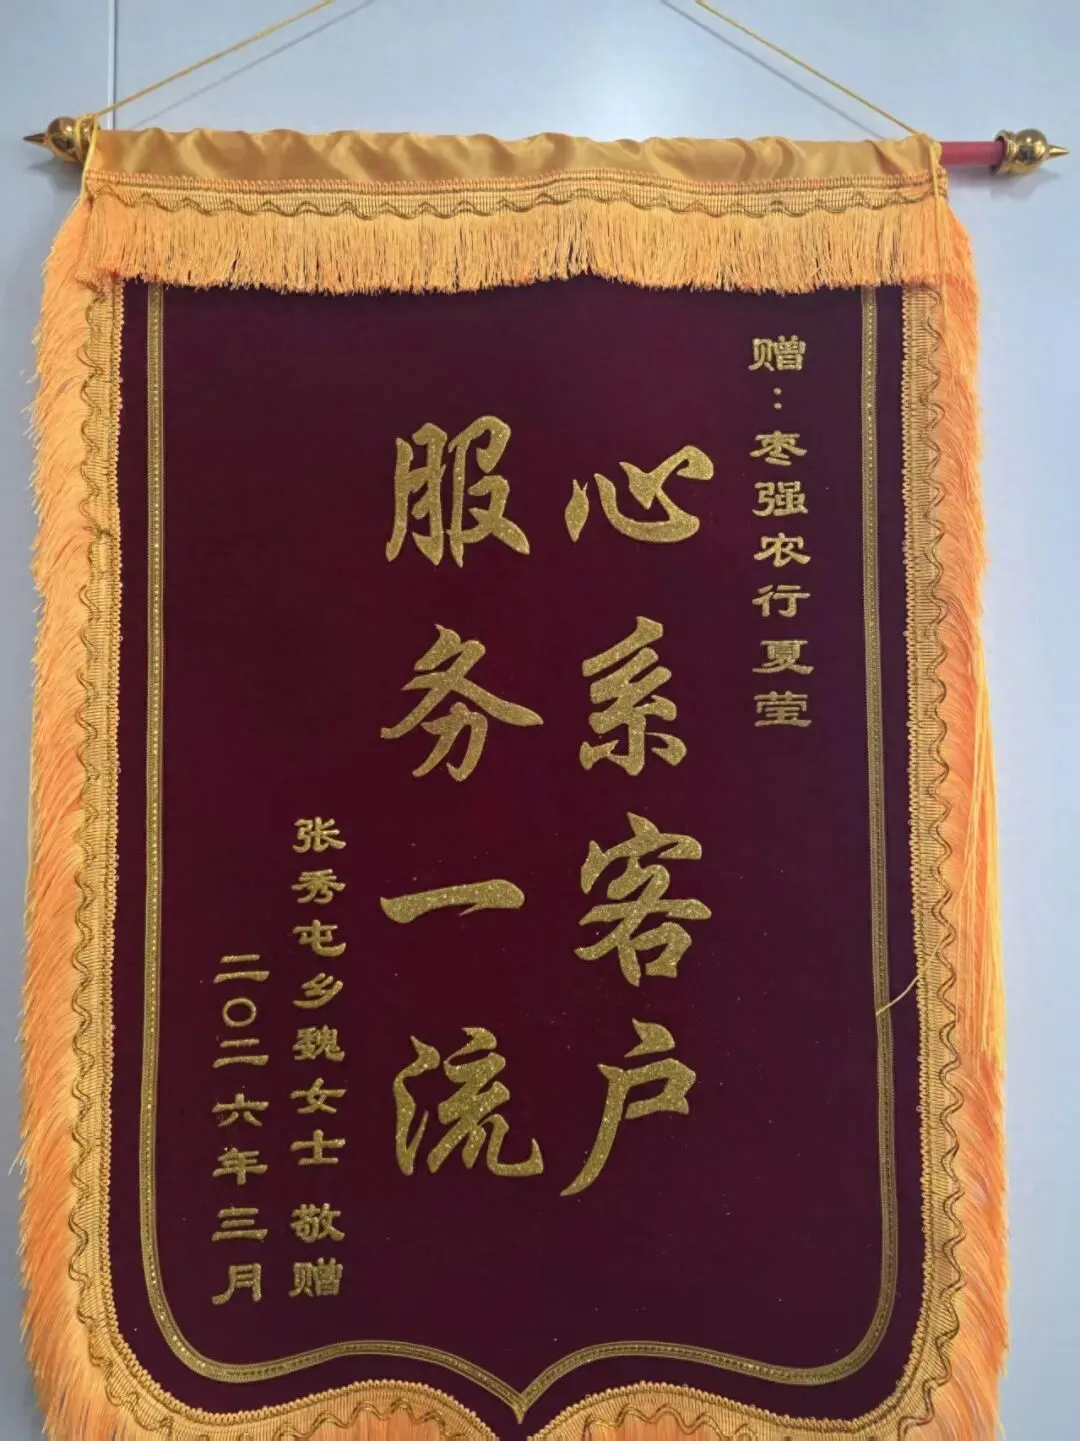 赠：枣强农行夏莹
心系客户
服务一流
张秀屯乡魏女士 敬赠
二〇二六年三月